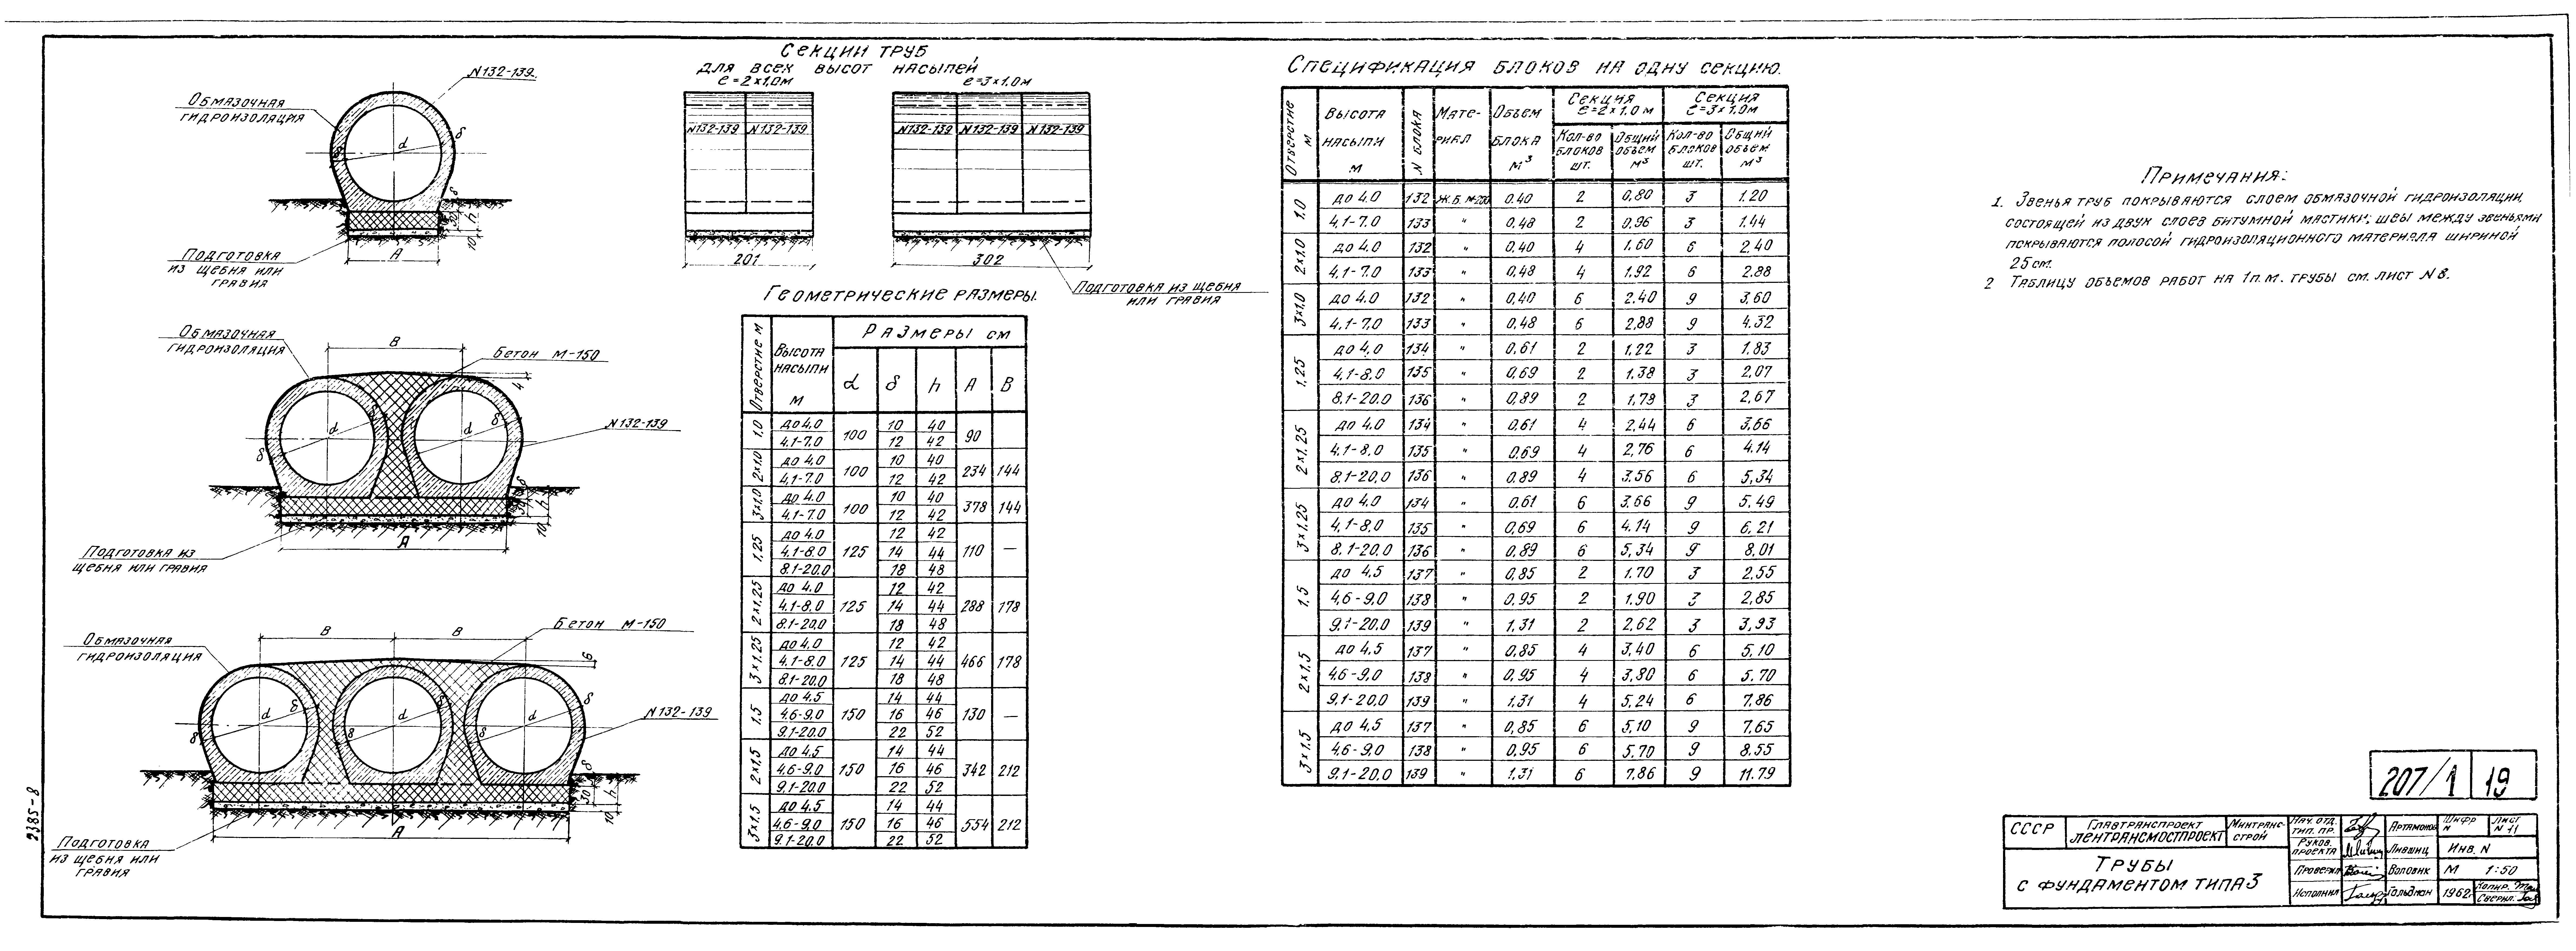 N132-139.
Обмазочная
гидроизоляция
d
δ
δ
30
h
10
А
Подготовка
из щебня или
гравия
Секции труб
для всех высот насыпей
ℓ=2×1,0м
ℓ=3×1.0м
N132-139 N132-139
N132-139 N132-139 N132-139
201
302
Подготовка из щебня
или гравия
Обмазочная
гидроизоляция
В
Бетон М-150
4
N132-139
d
d
δ
δ
h
10
А
Подготовка из
щебня или гравия
Обмазочная
гидроизоляция
В
В
Бетон М-150
6
N132-139
d
d
d
δ
δ
30
h
10
А
Подготовка
из щебня или
гравия
Геометрические размеры.
Отверстие м
Высота насыпи м
Размеры см
d δ h А В
1.0 до 4.0 100 10 40 90
4.1-7.0 12 42
2×1.0 до 4.0 100 10 40 234 144
4.1-7.0 12 42
3×1.0 до 4.0 100 10 40 378 144
4.1-7.0 12 42
1.25 до 4.0 125 12 42 110 —
4.1-8.0 14 44
8.1-20.0 18 48
2×1.25 до 4.0 125 12 42 288 178
4.1-8.0 14 44
8.1-20.0 18 48
3×1.25 до 4.0 125 12 42 466 178
4.1-8.0 14 44
8.1-20.0 18 48
1.5 до 4.5 150 14 44 130 —
4.6-9.0 16 46
9.1-20.0 22 52
2×1.5 до 4.5 150 14 44 342 212
4.6-9.0 16 46
9.1-20.0 22 52
3×1.5 до 4.5 150 14 44 554 212
4.6-9.0 16 46
9.1-20.0 22 52
Спецификация блоков на одну секцию.
Отверстие м
Высота насыпи м
N блока
Материал
Объем блока м³
Секция ℓ=2×1.0м
Секция ℓ=3×1.0м
Кол-во блоков шт.
Общий объем м³
Кол-во блоков шт.
Общий объем м³
1.0 до 4.0 132 Ж.Б. М-200 0.40 2 0,80 3 1.20
4.1-7.0 133 " 0.48 2 0,96 3 1.44
2×1.0 до 4.0 132 " 0.40 4 1.60 6 2.40
4.1-7.0 133 " 0.48 4 1.92 6 2.88
3×1.0 до 4.0 132 " 0,40 6 2.40 9 3,60
4.1-7.0 133 " 0.48 6 2,88 9 4.32
1.25 до 4.0 134 " 0.61 2 1,22 3 1,83
4.1-8.0 135 " 0.69 2 1,38 3 2,07
8.1-20.0 136 " 0,89 2 1,78 3 2,67
2×1.25 до 4.0 134 " 0.61 4 2.44 6 3,66
4.1-8.0 135 " 0.69 4 2,76 6 4.14
8.1-20,0 136 " 0.89 4 3.56 6 5,34
3×1.25 до 4.0 134 " 0.61 6 3.66 9 5,49
4.1-8.0 135 " 0,69 6 4.14 9 6,21
8.1-20.0 136 " 0,89 6 5,34 9 8,01
1.5 до 4.5 137 " 0,85 2 1.70 3 2.55
4,6-9.0 138 " 0.95 2 1.90 3 2,85
9.1-20.0 139 " 1.31 2 2.62 3 3,93
2×1.5 до 4,5 137 " 0.85 4 3,40 6 5,10
4.6-9.0 138 " 0,95 4 3,80 6 5.70
9.1-20.0 139 " 1.31 4 5,24 6 7.86
3×1.5 до 4.5 137 " 0,85 6 5,10 9 7,65
4.6-9.0 138 " 0.95 6 5,70 9 8.55
9.1-20,0 139 " 1.31 6 7.86 9 11.79
Примечания:
1. Звенья труб покрываются слоем обмазочной гидроизоляции,
состоящей из двух слоев битумной мастики; швы между звеньями
покрываются полосой гидроизоляционного материала шириной
25см.
2 Таблицу объемов работ на 1п.м. трубы см. лист N 8.
207/1 19
СССР
Главтранспроект
Лентрансмостпроект
Минтрансстрой
Трубы
с фундаментом типа 3
Нач. отд. тип. пр. Артамонов
Руков. проекта Лившиц
Проверил Воловик
Исполнил Гольдман
Шифр N
Лист N 11
Инв. N
М 1:50
1962г.
Копир.
Сверил.
2385-8